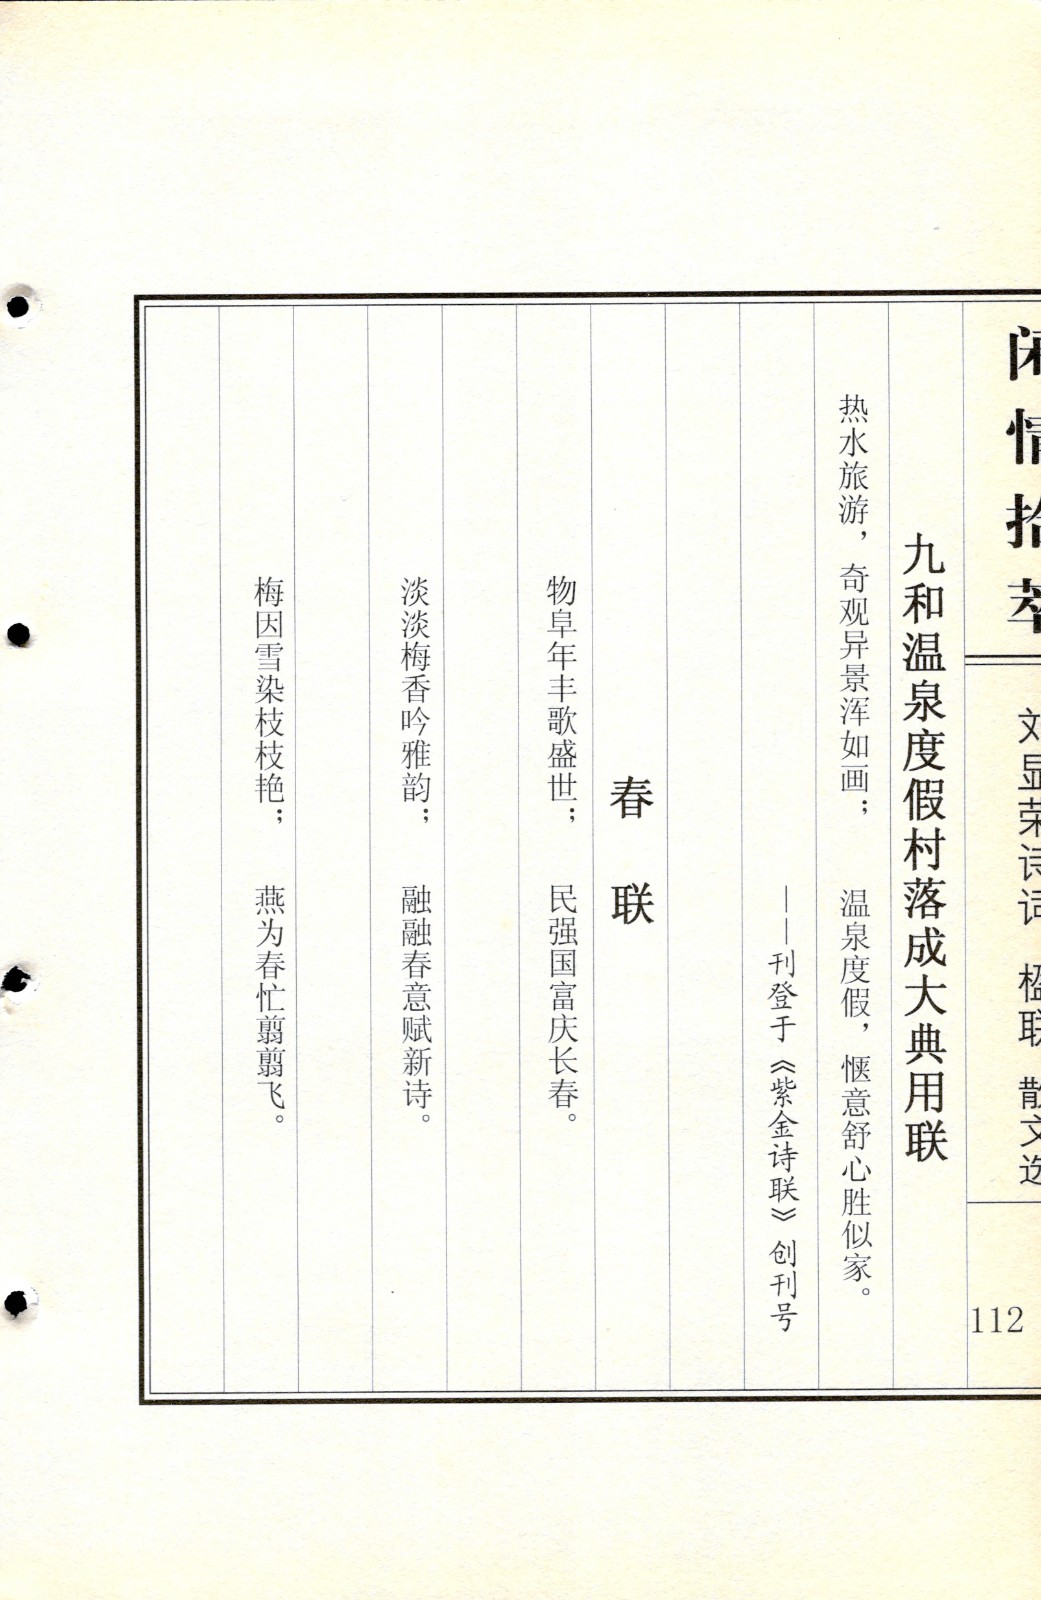 闲情拾萃
刘显荣诗词 楹联 散文选
112
九和温泉度假村落成大典用联
热水旅游，奇观异景浑如画； 温泉度假，惬意舒心胜似家。
——刊登于《紫金诗联》创刊号
春 联
物阜年丰歌盛世； 民强国富庆长春。
淡淡梅香吟雅韵； 融融春意赋新诗。
梅因雪染枝枝艳； 燕为春忙翦翦飞。